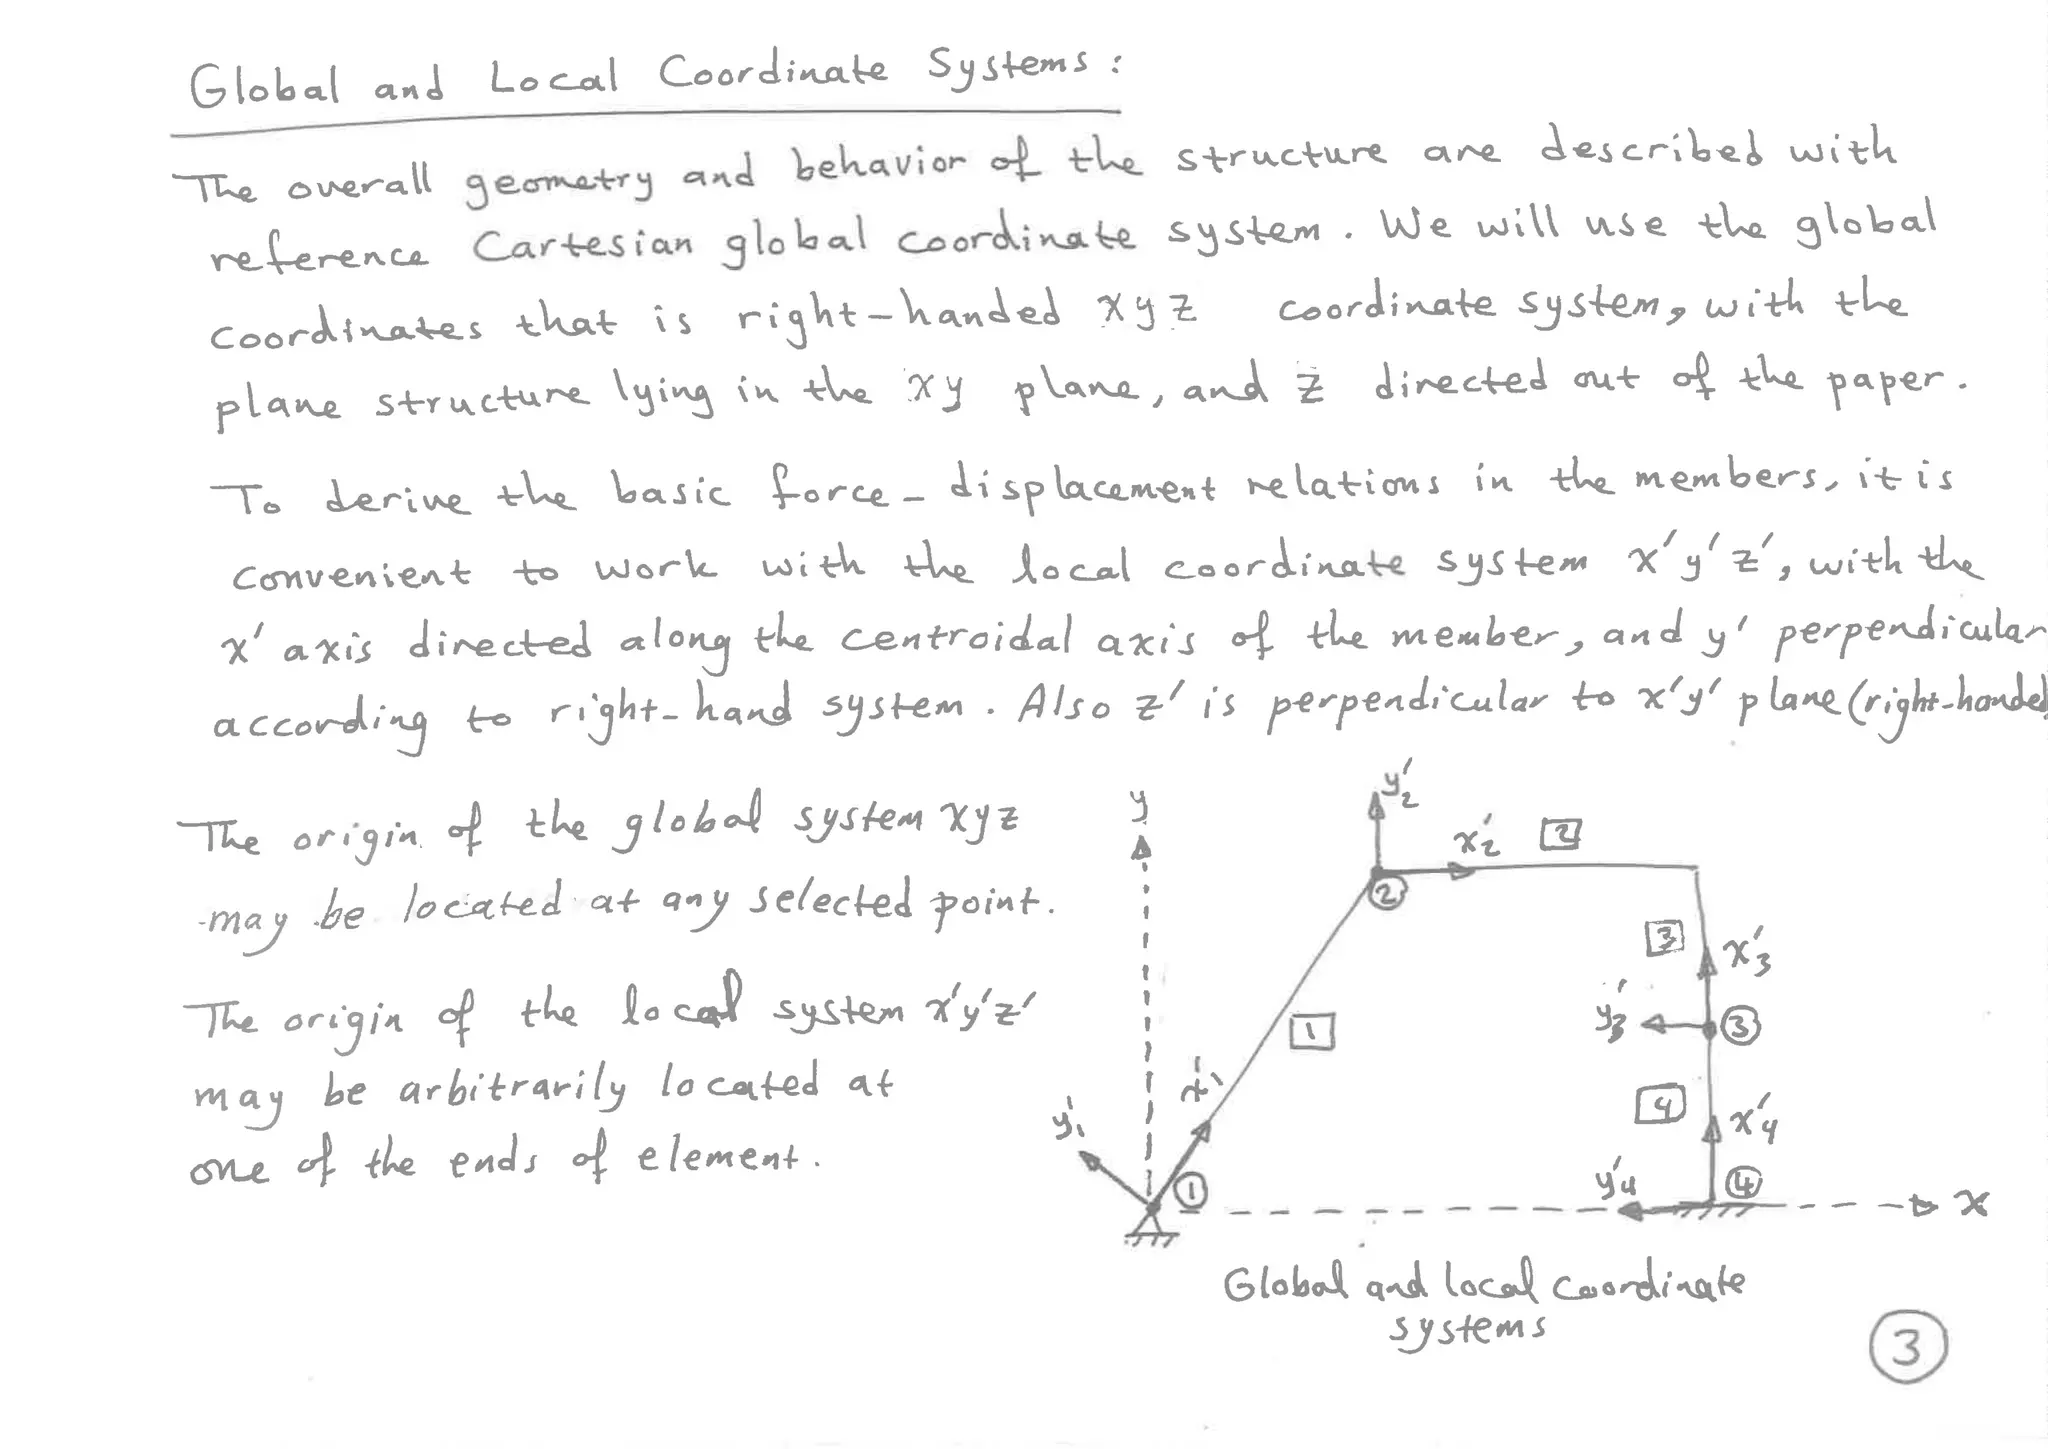 Global and Local Coordinate Systems :
The overall geometry and behavior of the structure are described with
reference Cartesian global coordinate system. We will use the global
coordinates that is right-handed xyz coordinate system, with the
plane structure lying in the xy plane, and z directed out of the paper.
To derive the basic force-displacement relations in the members, it is
convenient to work with the local coordinate system x'y'z', with the
x' axis directed along the centroidal axis of the member, and y' perpendicular
according to right-hand system. Also z' is perpendicular to x'y' plane (right-handed)
The origin of the global system xyz
may be located at any selected point.
The origin of the local system x'y'z'
may be arbitrarily located at
one of the ends of element.
y
y'2
x'2
2
2
3
x'3
y'3
3
1
x'1
y'1
4
x'4
y'4
4
1
x
Global and local coordinate
systems
3